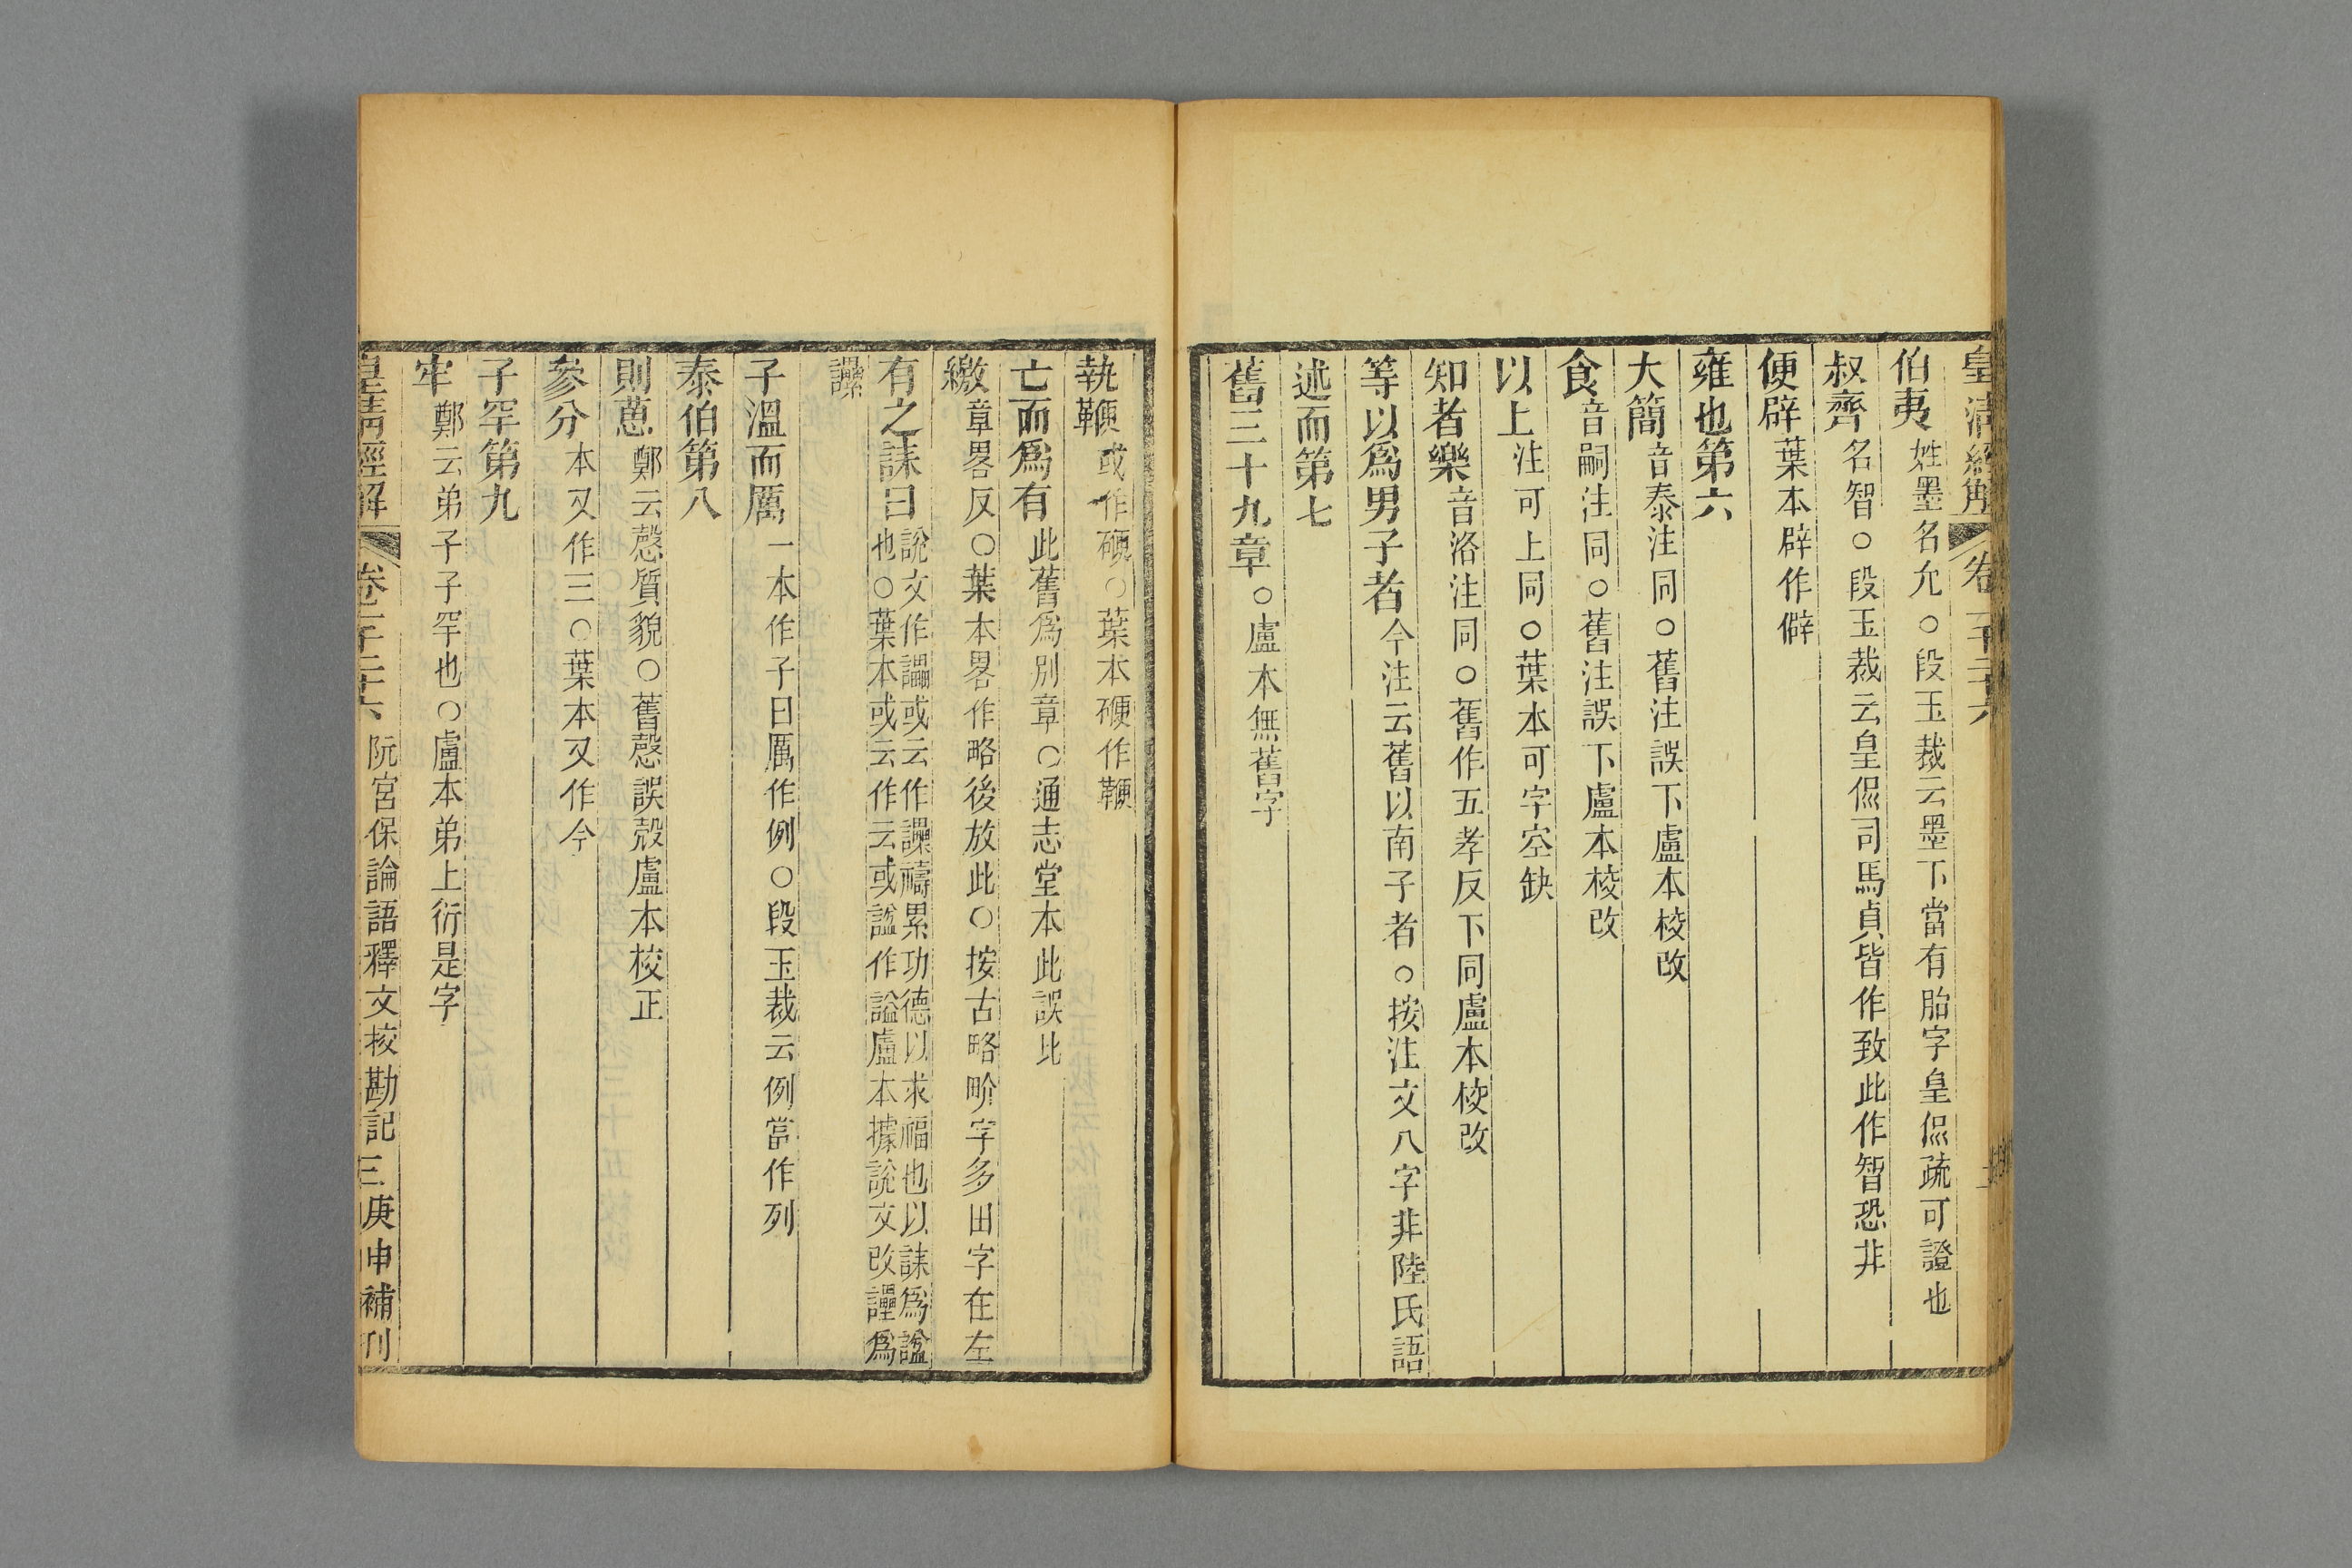 皇清經解 卷一千二十六
伯夷 姓墨名允○段玉裁云墨下當有胎字皇侃疏可證也
叔齊 名智○段玉裁云皇侃司馬貞皆作致此作智恐非
便辟 葉本辟作僻
雍也第六
大簡 音泰注同○舊注誤下盧本校改
食 音嗣注同○舊注誤下盧本校改
以上 注可上同○葉本可字空缺
知者樂 音洛注同○舊作五孝反下同盧本校改
等以爲男子者 今注云舊以南子者○按注文八字非陸氏語
述而第七
舊三十九章 ○盧本無舊字
執鞭 或作硬○葉本硬作鞕
亡而爲有 此舊爲別章○通志堂本此誤比
繳 章畧反○葉本畧作略後放此○按古略畍字多田字在左
有之誄曰 說文作讄或云作讄禱累功德以求福也以誄爲謚
也○葉本或云作云或謚作諡盧本據說文改讄爲
讄
子溫而厲 一本作子曰厲作例○段玉裁云例當作列
泰伯第八
則葸 鄭云慤質貌○舊慤誤㱿盧本校正
參分 本又作三○葉本又作今
子罕第九
牢 鄭云弟子子罕也○盧本弟上衍是字
皇清經解 卷一千二十六 阮宮保論語釋文挍勘記 三 庚申補刊